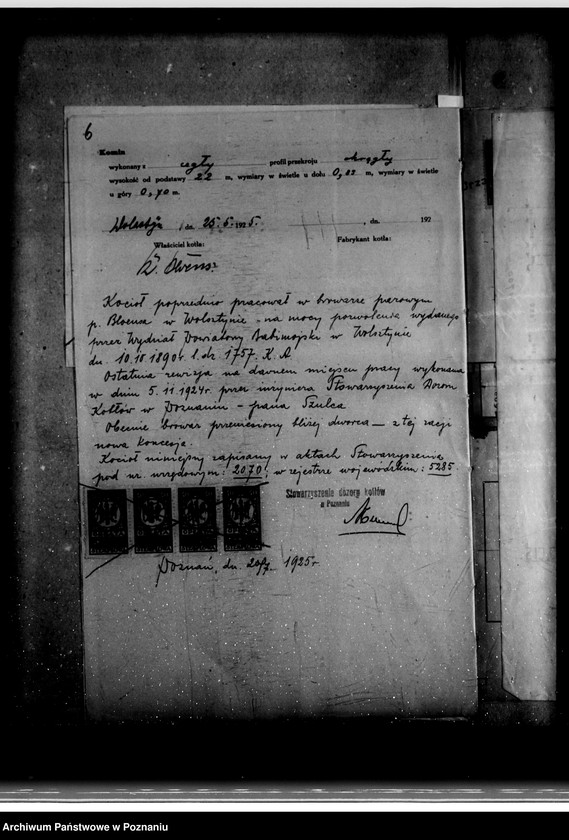 6
Komin
wykonany z cegły profil przekroju okrągły
wysokość od podstawy 22 m, wymiary w świetle u dołu 0,82 m, wymiary w świetle
u góry 0,70 m.
Wolsztyn, dn. 25.5.1925. , dn. 192
Właściciel kotła: Fabrykant kotła:
Kocioł poprzednio pracował w browarze parowym
p. w Wolsztynie - na mocy pozwolenia wydanego
przez Wydział Powiatowy Babimojski w Wolsztynie
dn. 10.IV.1890r. l.dz. 1757. K.A.
Ostatnia rewizja na dawnem miejscu pracy wykonana
w dniu 5.11.1924r przez inżyniera Stowarzyszenia Dozoru
Kotłów w Poznaniu - pana Szulca
Obecnie browar przeniesiony bliżej dworca - z tej racji
nowa koncesja.
Kocioł niniejszy zapisany w aktach Stowarzyszenia
pod nr. urzędowym: 2070; w rejestrze wojewódzkim: 5285
Stowarzyszenie dozoru kotłów
w Poznaniu
Poznań, dn. 20/7. 1925r
Archiwum Państwowe w Poznaniu